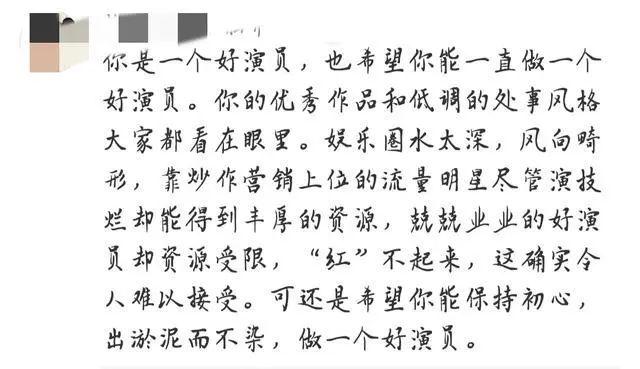 你是一个好演员，也希望你能一直做一个
好演员。你的优秀作品和低调的处事风格
大家都看在眼里。娱乐圈水太深，风向畸
形，靠炒作营销上位的流量明星尽管演技
烂却能得到丰厚的资源，兢兢业业的好演
员却资源受限，“红”不起来，这确实令
人难以接受。可还是希望你能保持初心，
出淤泥而不染，做一个好演员。